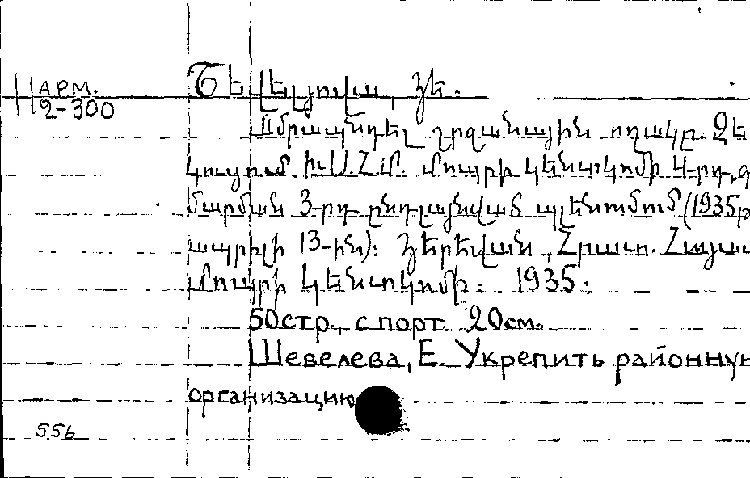 АРМ.
2-300
Շեվելյովա, Յե.
Ամրապնդել շրջանային ողակը. Զե
կուցում Խ.Ս.Հ.Մ. մոպրի կենտ. կոմի 4-րդ գ
մարման 3-րդ ընդլայնված պլենումում (1935թ
ապրիլի 13-ին): Յերեվան, Հրատ. Հայաս
մոպրի կենտկոմի. 1935.
50стр., с порт. 20см.
Шевелева, Е. Укрепить районную
организацию
556